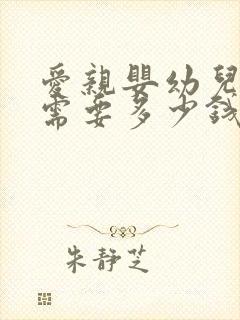 愛親嬰幼兒
需要多少錢
朱靜芝